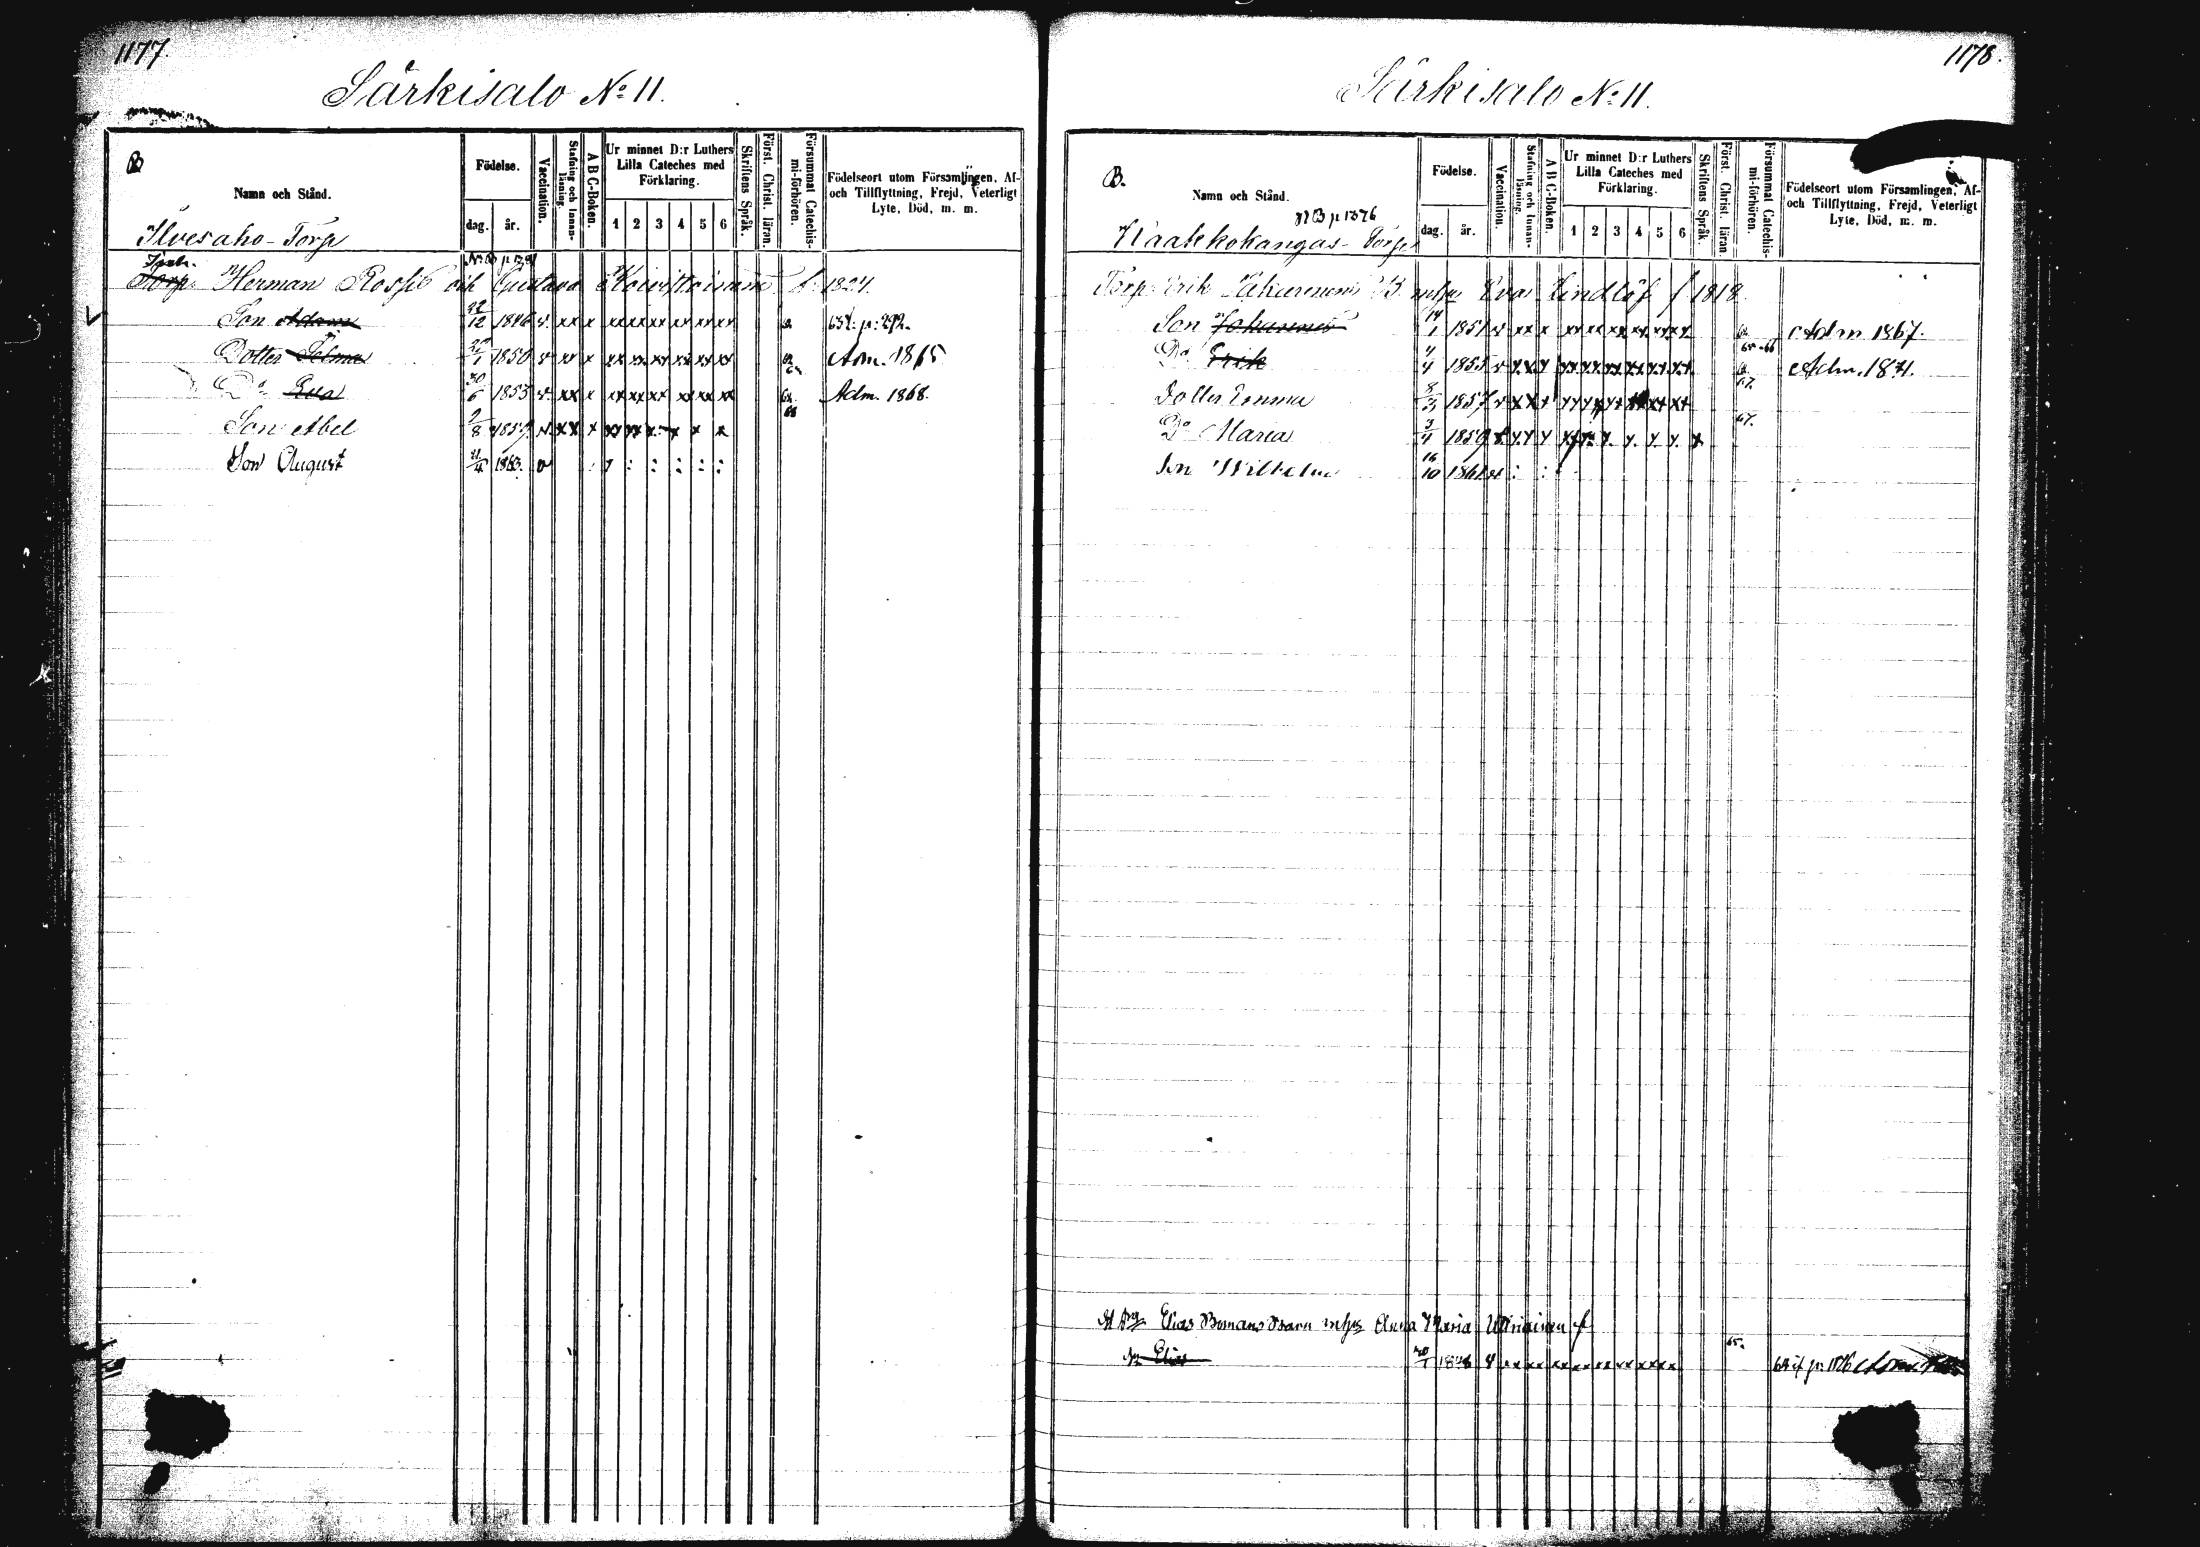 1177.
Särkisalo No 11.
B
Namn och Stånd.
Födelse.
dag. år.
Vaccination.
Stafning och Innanläsning.
A B C-Boken.
Ur minnet D:r Luthers Lilla Cateches med Förklaring.
1 2 3 4 5 6
Skriftens Språk.
Först. Christ. läran.
Försummat Catechismi-förhören.
Födelseort utom Församlingen, Af- och Tillflyttning, Frejd, Veterligt Lyte, Död, m. m.
Ilvesaho-Torp
Torp. Herman Rossi och Gustava f. 1824.
Son Adam 22/12 1846 v xx x xx xx xx xx xx xx p: 292.
Dotter 1850 v xx x xx xx xx xx xx xx Adm. 1865
Do Eva 30/6 1853 v xx x xx xx xx xx xx xx Adm. 1868.
Son Abel 2/8 1857
Son August 11/4 1863. v
1178.
Särkisalo No 11.
B.
Namn och Stånd.
Födelse.
dag. år.
Vaccination.
Stafning och Innanläsning.
A B C-Boken.
Ur minnet D:r Luthers Lilla Cateches med Förklaring.
1 2 3 4 5 6
Skriftens Språk.
Först. Christ. läran.
Försummat Catechismi-förhören.
Födelseort utom Församlingen, Af- och Tillflyttning, Frejd, Veterligt Lyte, Död, m. m.
B p 1376
Kaakkokangas-Torp
Torp. Erik Eva Lindlöf f 1818
Son Johannes 14/1 1851 v xx x xx xx xx xx xx xx Adm 1867.
Do Erik 4/4 1855 65-66 Adm. 1871.
Dotter Emma 8/3 1857 67.
Do Maria 3/4 1859 67.
Son Wilhelm 16/10 1861
Elias Bomans Anna Maria f
Elias 1848 65.